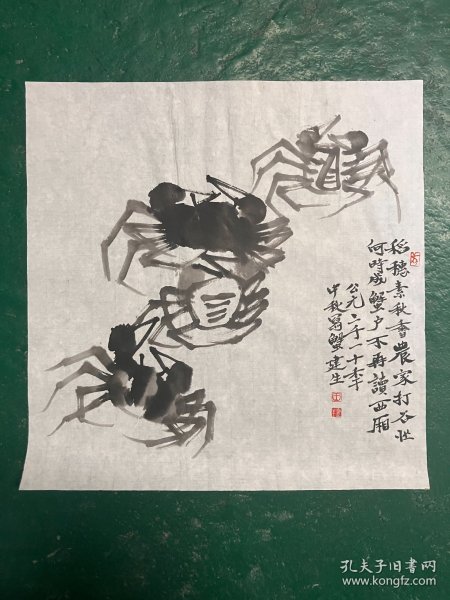 稻穗素秋香農家打谷忙
何時成蟹户不再讀西廂
公元二千一十年
中秋寫蟹建生
孔夫子旧书网
www.kongfz.com